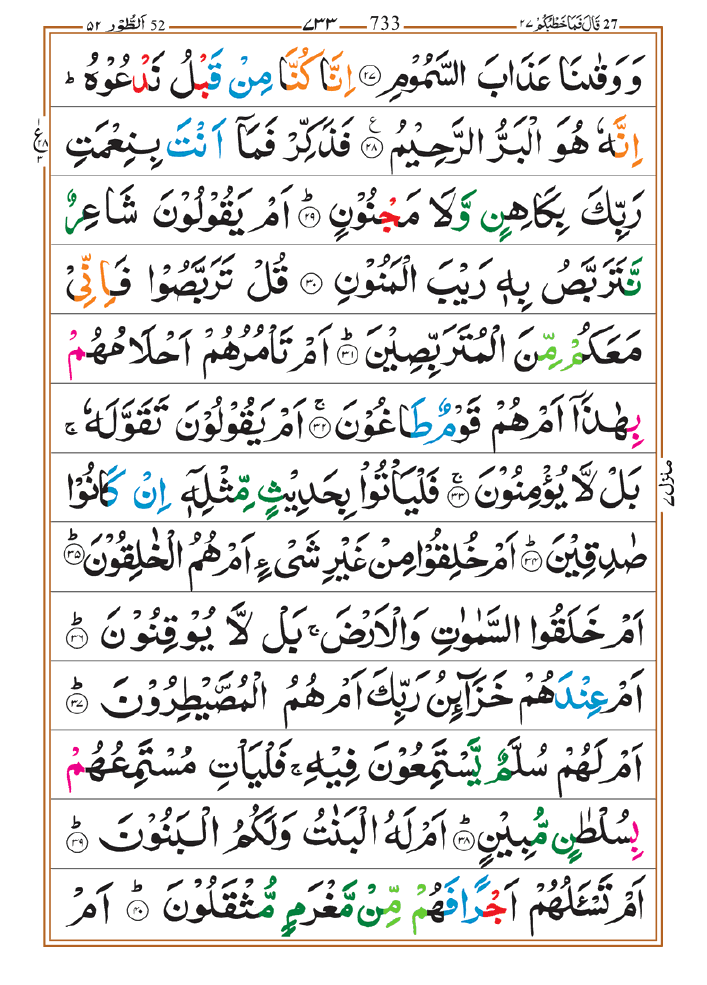 27 قَالَ فَمَا خَطْبُكُمْ ٢٧   733   ٧٣٣   52 اَلطُّوْر ٥٢
وَ وَقٰىنَا عَذَابَ السَّمُوْمِ ﴿٢٧﴾ اِنَّا كُنَّا مِنْ قَبْلُ نَدْعُوْهُ ؕ
اِنَّهٗ هُوَ الْبَرُّ الرَّحِيْمُ ﴿٢٨﴾ ع فَذَكِّرْ فَمَاۤ اَنْتَ بِنِعْمَتِ
رَبِّكَ بِكَاهِنٍ وَّلَا مَجْنُوْنٍ ﴿٢٩﴾ؕ اَمْ يَقُوْلُوْنَ شَاعِرٌ
نَّتَرَبَّصُ بِهٖ رَيْبَ الْمَنُوْنِ ﴿٣٠﴾ قُلْ تَرَبَّصُوْا فَاِنِّىْ
مَعَكُمْ مِّنَ الْمُتَرَبِّصِيْنَ ﴿٣١﴾ؕ اَمْ تَاْمُرُهُمْ اَحْلَامُهُمْ
بِهٰذَاۤ اَمْ هُمْ قَوْمٌ طَاغُوْنَ ﴿٣٢﴾ۚ اَمْ يَقُوْلُوْنَ تَقَوَّلَهٗ ۚ
بَلْ لَّا يُؤْمِنُوْنَ ﴿٣٣﴾ۚ فَلْيَاْتُوْا بِحَدِيْثٍ مِّثْلِهٖۤ اِنْ كَانُوْا
صٰدِقِيْنَ ﴿٣٤﴾ؕ اَمْ خُلِقُوْا مِنْ غَيْرِ شَىْءٍ اَمْ هُمُ الْخٰلِقُوْنَ ﴿٣٥﴾ؕ
اَمْ خَلَقُوا السَّمٰوٰتِ وَالْاَرْضَ ۚ بَلْ لَّا يُوْقِنُوْنَ ﴿٣٦﴾ؕ
اَمْ عِنْدَهُمْ خَزَآئِنُ رَبِّكَ اَمْ هُمُ الْمُصَۜيْطِرُوْنَ ﴿٣٧﴾ؕ
اَمْ لَهُمْ سُلَّمٌ يَّسْتَمِعُوْنَ فِيْهِ ۚ فَلْيَاْتِ مُسْتَمِعُهُمْ
بِسُلْطٰنٍ مُّبِيْنٍ ﴿٣٨﴾ؕ اَمْ لَهُ الْبَنٰتُ وَلَكُمُ الْبَنُوْنَ ﴿٣٩﴾ؕ
اَمْ تَسْـَٔلُهُمْ اَجْرًا فَهُمْ مِّنْ مَّغْرَمٍ مُّثْقَلُوْنَ ﴿٤٠﴾ؕ اَمْ
ع ٢٨ ٣
منزل ٧